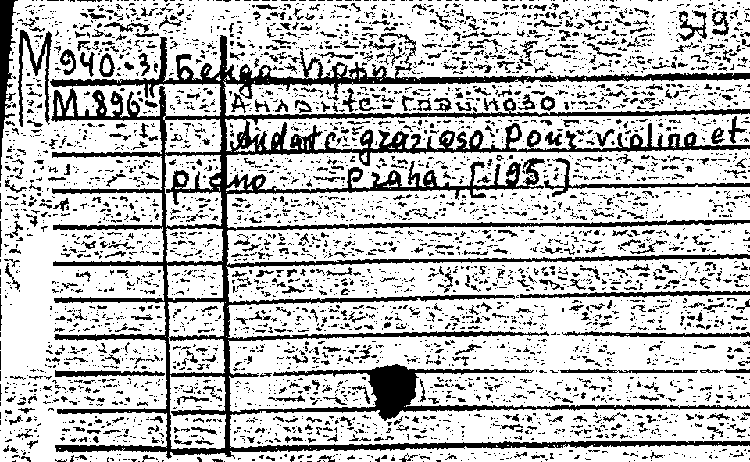 379
М 940-3 Бенда, Иржи
М.896-II Анданте-грациозо.
Andante grazioso. Pour violino et
piano Praha, [195.]